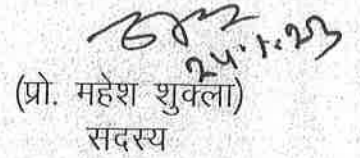 24.1.23
(प्रो. महेश शुक्ला)
सदस्य